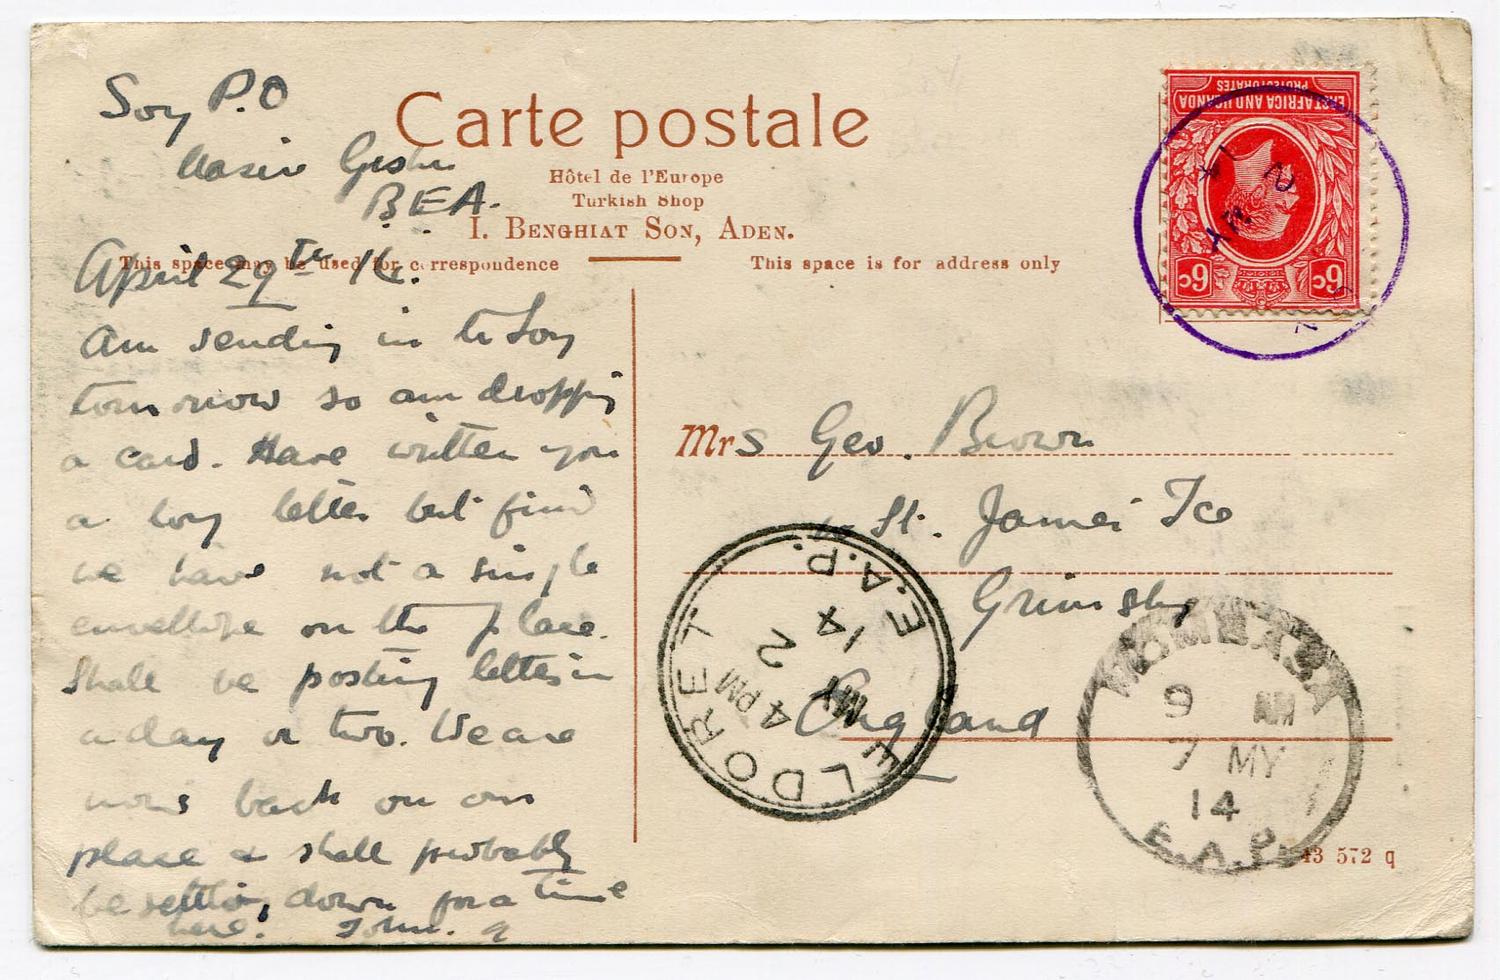 Soy P.O
Uasin Gishu
BEA.
Carte postale
Hôtel de l'Europe
Turkish Shop
I. BENGHIAT SON, ADEN.
This space may be used for correspondence
This space is for address only
April 29th 14.
Am sending in to Soy
tomorrow so am dropping
a card. Have written you
a long letter but find
we have not a single
envellope on the place.
Shall be posting letter in
a day or two. We are
now back on our
place & shall probably
be settling down for a time
here. John.
EAST AFRICA AND UGANDA
PROTECTORATES
6c 6c
Mrs Geo. Brown
St. James Tce
Grimsby
England
ELDORET
4 PM
MY 2
14
E.A.P.
MOMBASA
9 AM
7 MY
14
E.A.P.
43 572 q